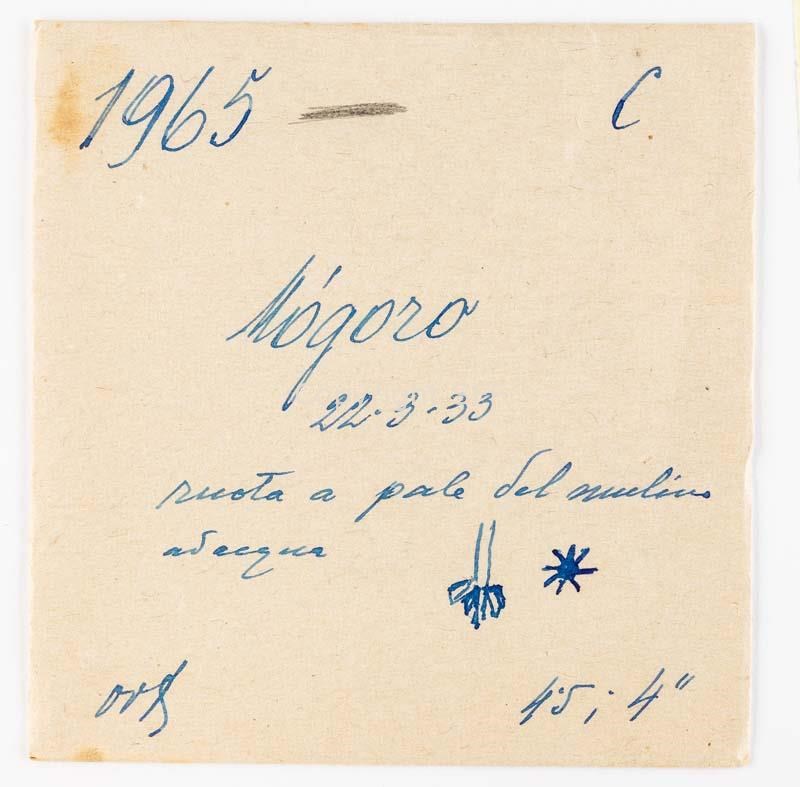 1965 C
Mógoro
22-3-33
ruota a pale del mulino
ad acqua
45; 4"